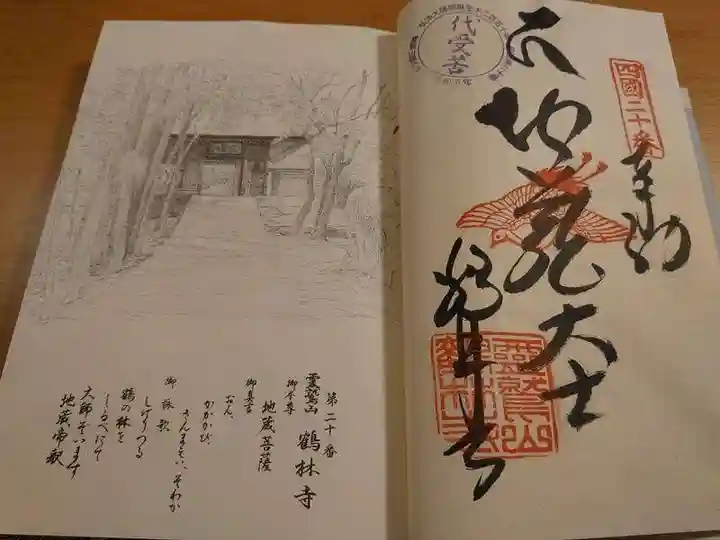 四國二十番
奉納
地蔵大士
鶴林寺
代受苦
霊鷲山
第二十番
霊鷲山 鶴林寺
御本尊
地蔵菩薩
御真言
おん、
かかかび、
さんまえい、そわか
御詠歌
しげりつる
鶴の林を
しるべにて
大師ぞいます
地蔵帝釈